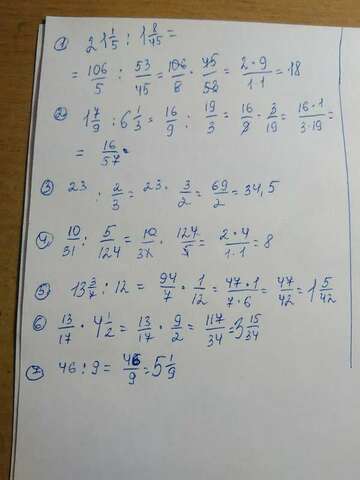 1) 21 1/5 : 1 8/45 =
= 106/5 : 53/45 = 106/5 · 45/53 = 2·9/1·1 = 18
2) 1 7/9 : 6 1/3 = 16/9 : 19/3 = 16/9 · 3/19 = 16·1/3·19 =
= 16/57
3) 23 : 2/3 = 23 · 3/2 = 69/2 = 34,5
4) 10/31 : 5/124 = 10/31 · 124/5 = 2·4/1·1 = 8
5) 13 3/7 : 12 = 94/7 · 1/12 = 47·1/7·6 = 47/42 = 1 5/42
6) 13/17 · 4 1/2 = 13/17 · 9/2 = 117/34 = 3 15/34
7) 46 : 9 = 46/9 = 5 1/9